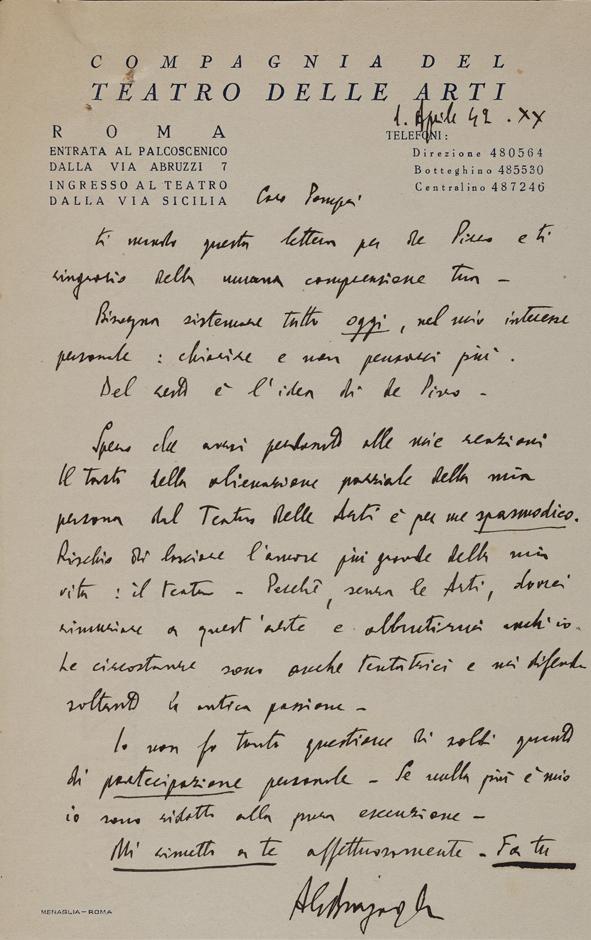 COMPAGNIA DEL
TEATRO DELLE ARTI
1. Aprile 42. XX
ROMA
ENTRATA AL PALCOSCENICO
DALLA VIA ABRUZZI 7
INGRESSO AL TEATRO
DALLA VIA SICILIA
TELEFONI:
Direzione 480564
Botteghino 485530
Centralino 487246
Caro Pompei
ti mando questa lettera per de Pirro e ti
ringrazio della umana comprensione tua –
Bisogna sistemare tutto oggi, nel mio interesse
personale: chiarire e non pensarci più.
Del resto è l'idea di de Pirro –
Spero che avrai perdonato alle mie reazioni
Il tasto della alienazione parziale della mia
persona dal Teatro delle Arti è per me spasmodico.
Rischio di lasciare l'amore più grande della mia
vita: il teatro – Perchè, senza le Arti, dovrei
rinunziare a quest'arte e abbrutirmi anch'io.
Le circostanze sono anche tentatrici e mi difende
soltanto la antica passione –
Io non fo tanto questione di soldi quanto
di partecipazione personale – Se nulla più è mio
io sono ridotto alla pura esecuzione –
Mi rimetto a te affettuosamente. Fa tu
AGBragaglia
MENAGLIA – ROMA